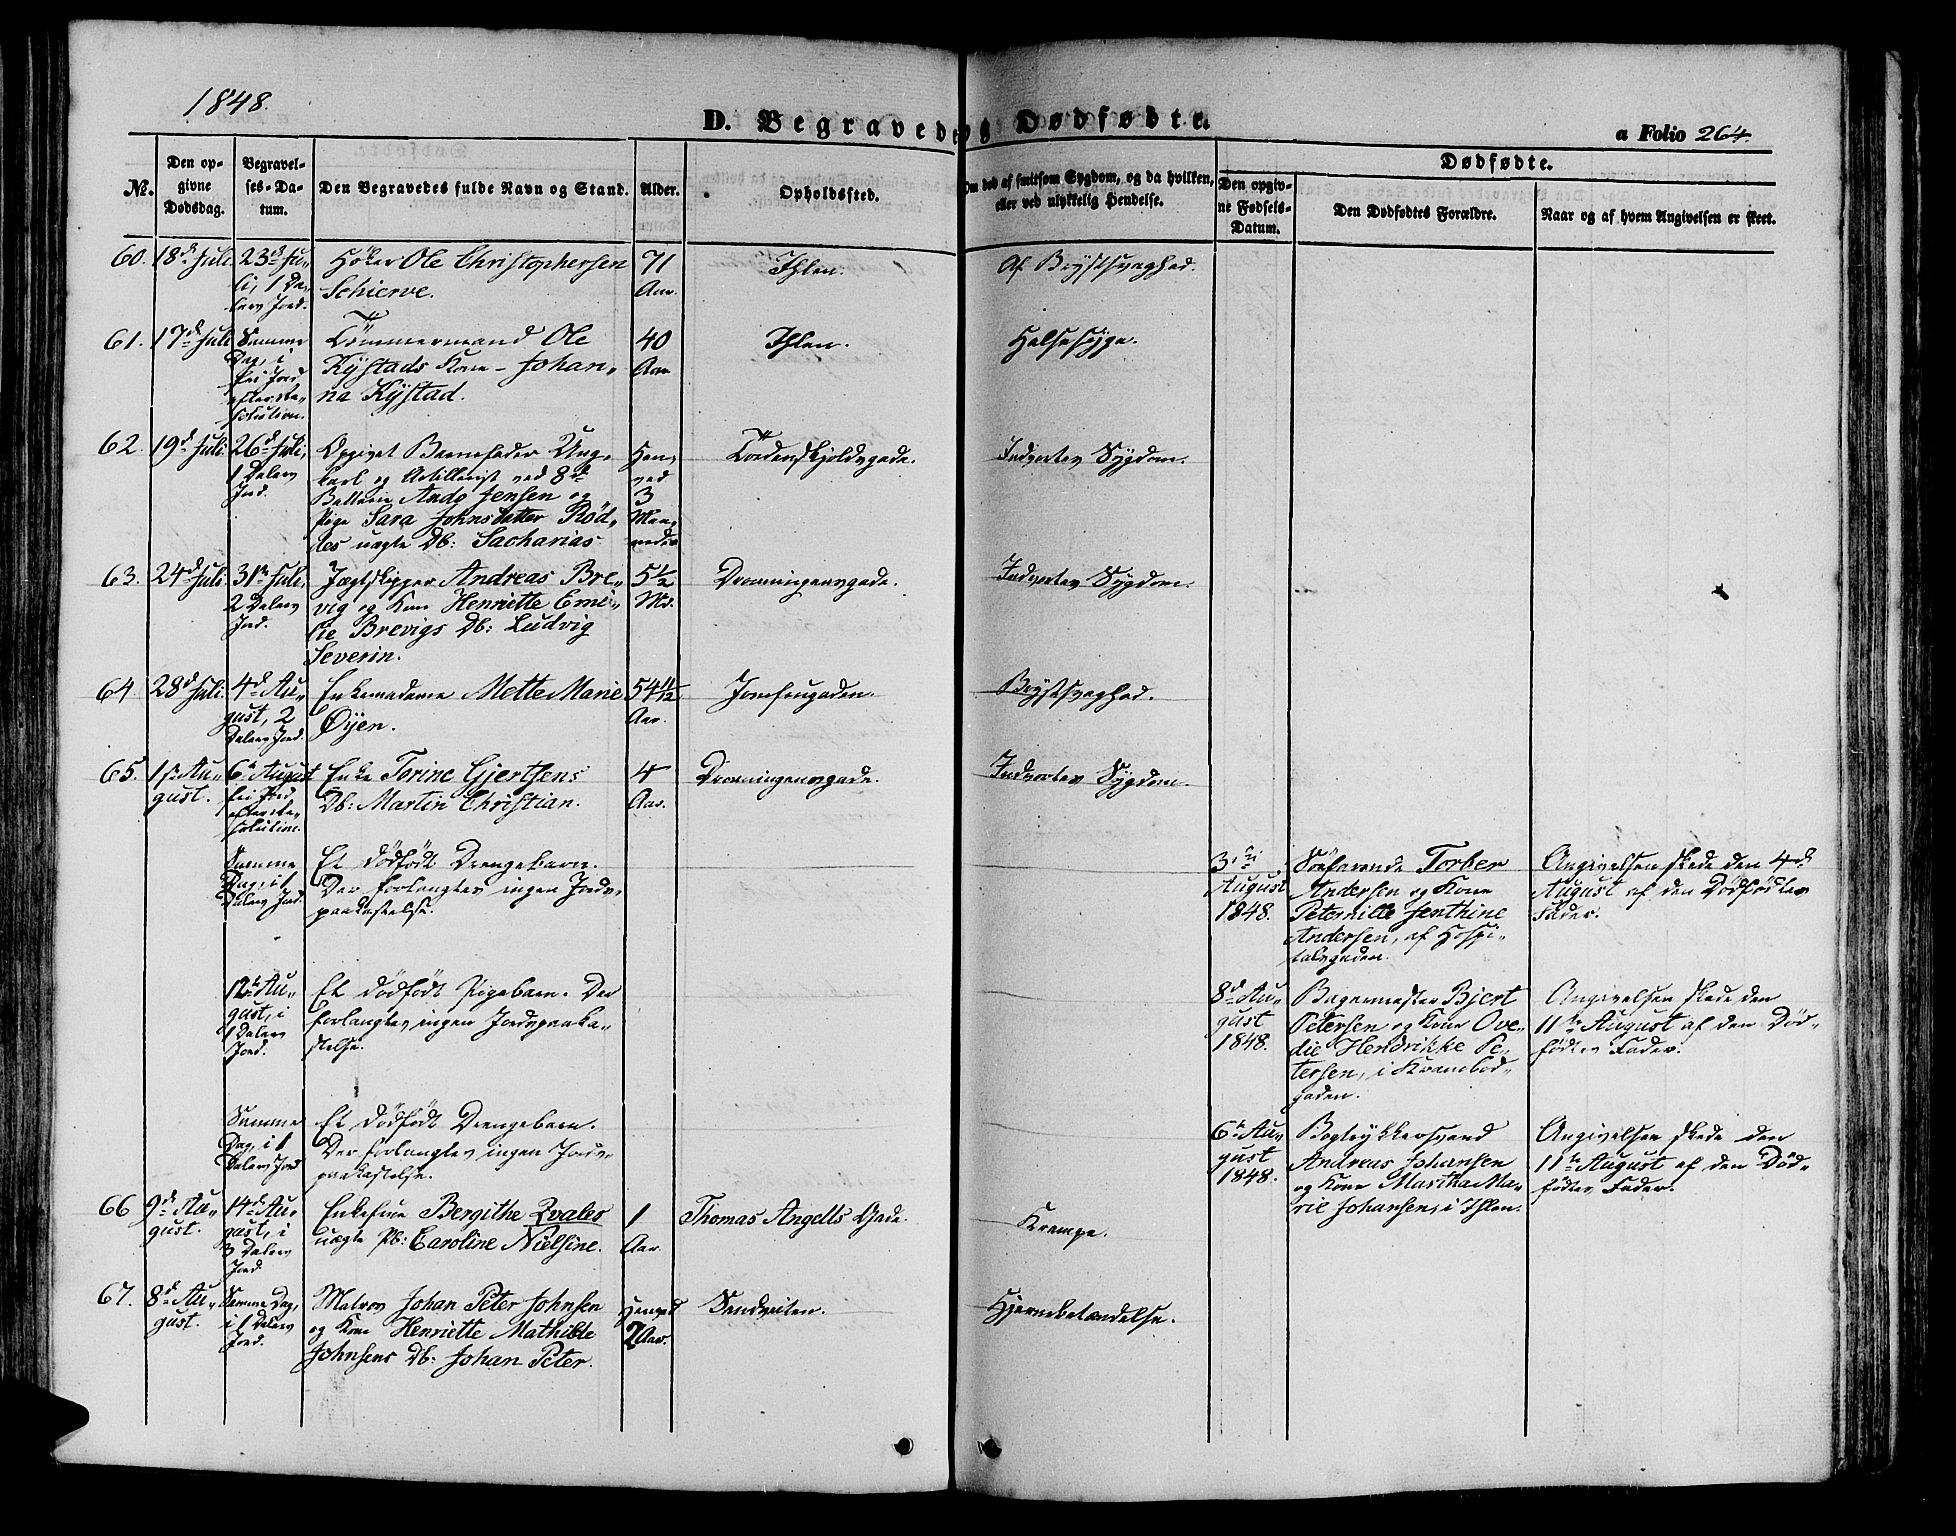 1848.
D. Begravede og Dødfødte.
a Folio 264.
No.
Den op-
givne
Dødsdag.
Begravel-
ses-Da-
tum.
Den Begravedes fulde Navn og Stand.
Alder.
Opholdssted.
Om død af smitsom Sygdom, og da hvilken,
eller ved ulykkelig Hendelse.
Dødfødte.
Den opgiv-
ne Fødsels-
Datum.
Den Dødfødtes Forældre.
Naar og af hvem Angivelsen er skeet.
60.
18de Juli.
23de Ju-
li, 1 Da-
lers Jord.
Høker Ole Christophersen
Schierve.
71
Aar.
Ihlen.
Af Brystsvaghed.
61.
17de Juli
Samme
Dag, i
fri Jord
efter Re-
solution.
Tømmermand Ole
Kystads Kone - Johan-
na Kystad.
40
Aar
Ihlen.
Halssyge.
62.
19de Juli.
26de Juli,
1 Dalers
Jord.
Opgivet Barnefader Ung-
karl og Artillerist ved 8de
Batterie Ando Jensen og
Pige Sara Johnsdatter Rød-
des uægte Db: Sacharias
Hen-
ved
3
Maa-
neder
Tordenskjoldsgade.
Indvortes Sygdom.
63.
24de Juli.
31te Juli.
2 Dalers
Jord.
Jægtskipper Andreas Bre-
vig og Kone Henriette Emi-
lie Brevigs Db: Ludvig
Severin.
5 1/2
Md.
Dronningensgade.
Indvortes Sygdom.
64
28de Juli.
4de Au-
gust, 2
Dalers Jord.
Enkemadame Mette Marie
Øyen.
54 11/12
Aar.
Jomfrugaden.
Brystsvaghed.
65.
1ste Au-
gust.
6te August
fri Jord
efter Re-
solution.
Enke Torine Gjertsens
Db: Martin Christian.
4
Aar.
Dronningensgade.
Indvortes Sygdom.
Samme
Dag, i 1
Dalers Jord.
Et dødfødt Drengebarn.
Der forlangtes ingen Jords-
paakastelse.
3die
August
1848.
Søefarende Torber
Andersen og Kone
Peternille Jenthine
Andersen, af Hospi-
talsgaden.
Angivelsen skede den 4de
August af den Dødfødtes
Fader.
12te Au-
gust, i
1 Dalers
Jord.
Et dødfødt Pigebarn. Der
forlangtes ingen Jordspaaka-
stelse.
8de Au-
gust
1848.
Bagermester Bjert
Petersen og Kone Ove-
die Hendrikke Pe-
tersen, i Krambod-
gaden.
Angivelsen skede den
11te August af den Død-
fødtes Fader.
Samme
Dag, i 1
Dalers Jord
Et dødfødt Drengebarn.
Der forlangtes ingen Jords-
paakastelse.
6te Au-
gust
1848.
Bogtrykkersvend
Andreas Johansen
og Kone Martha Ma-
rie Johansen, i Ihlen.
Angivelsen skede den
11te August af den Død-
fødtes Fader.
66
9de Au-
gust.
14de Au-
gust, i
3 Dalers
Jord.
Bergithe Qvales
uægte Pb: Caroline Nielsine.
1
Aar.
Thomas Angells Gade.
Krampe.
67.
8de Au-
gust.
Samme Dag,
i 1 Dalers
Jord.
Matros Johan Peter Johnsen
og Kone Henriette Mathilde
Johnsens Db: Johan Peter.
Henved
2 Aar.
Sandviten.
Hjernebetændelse.